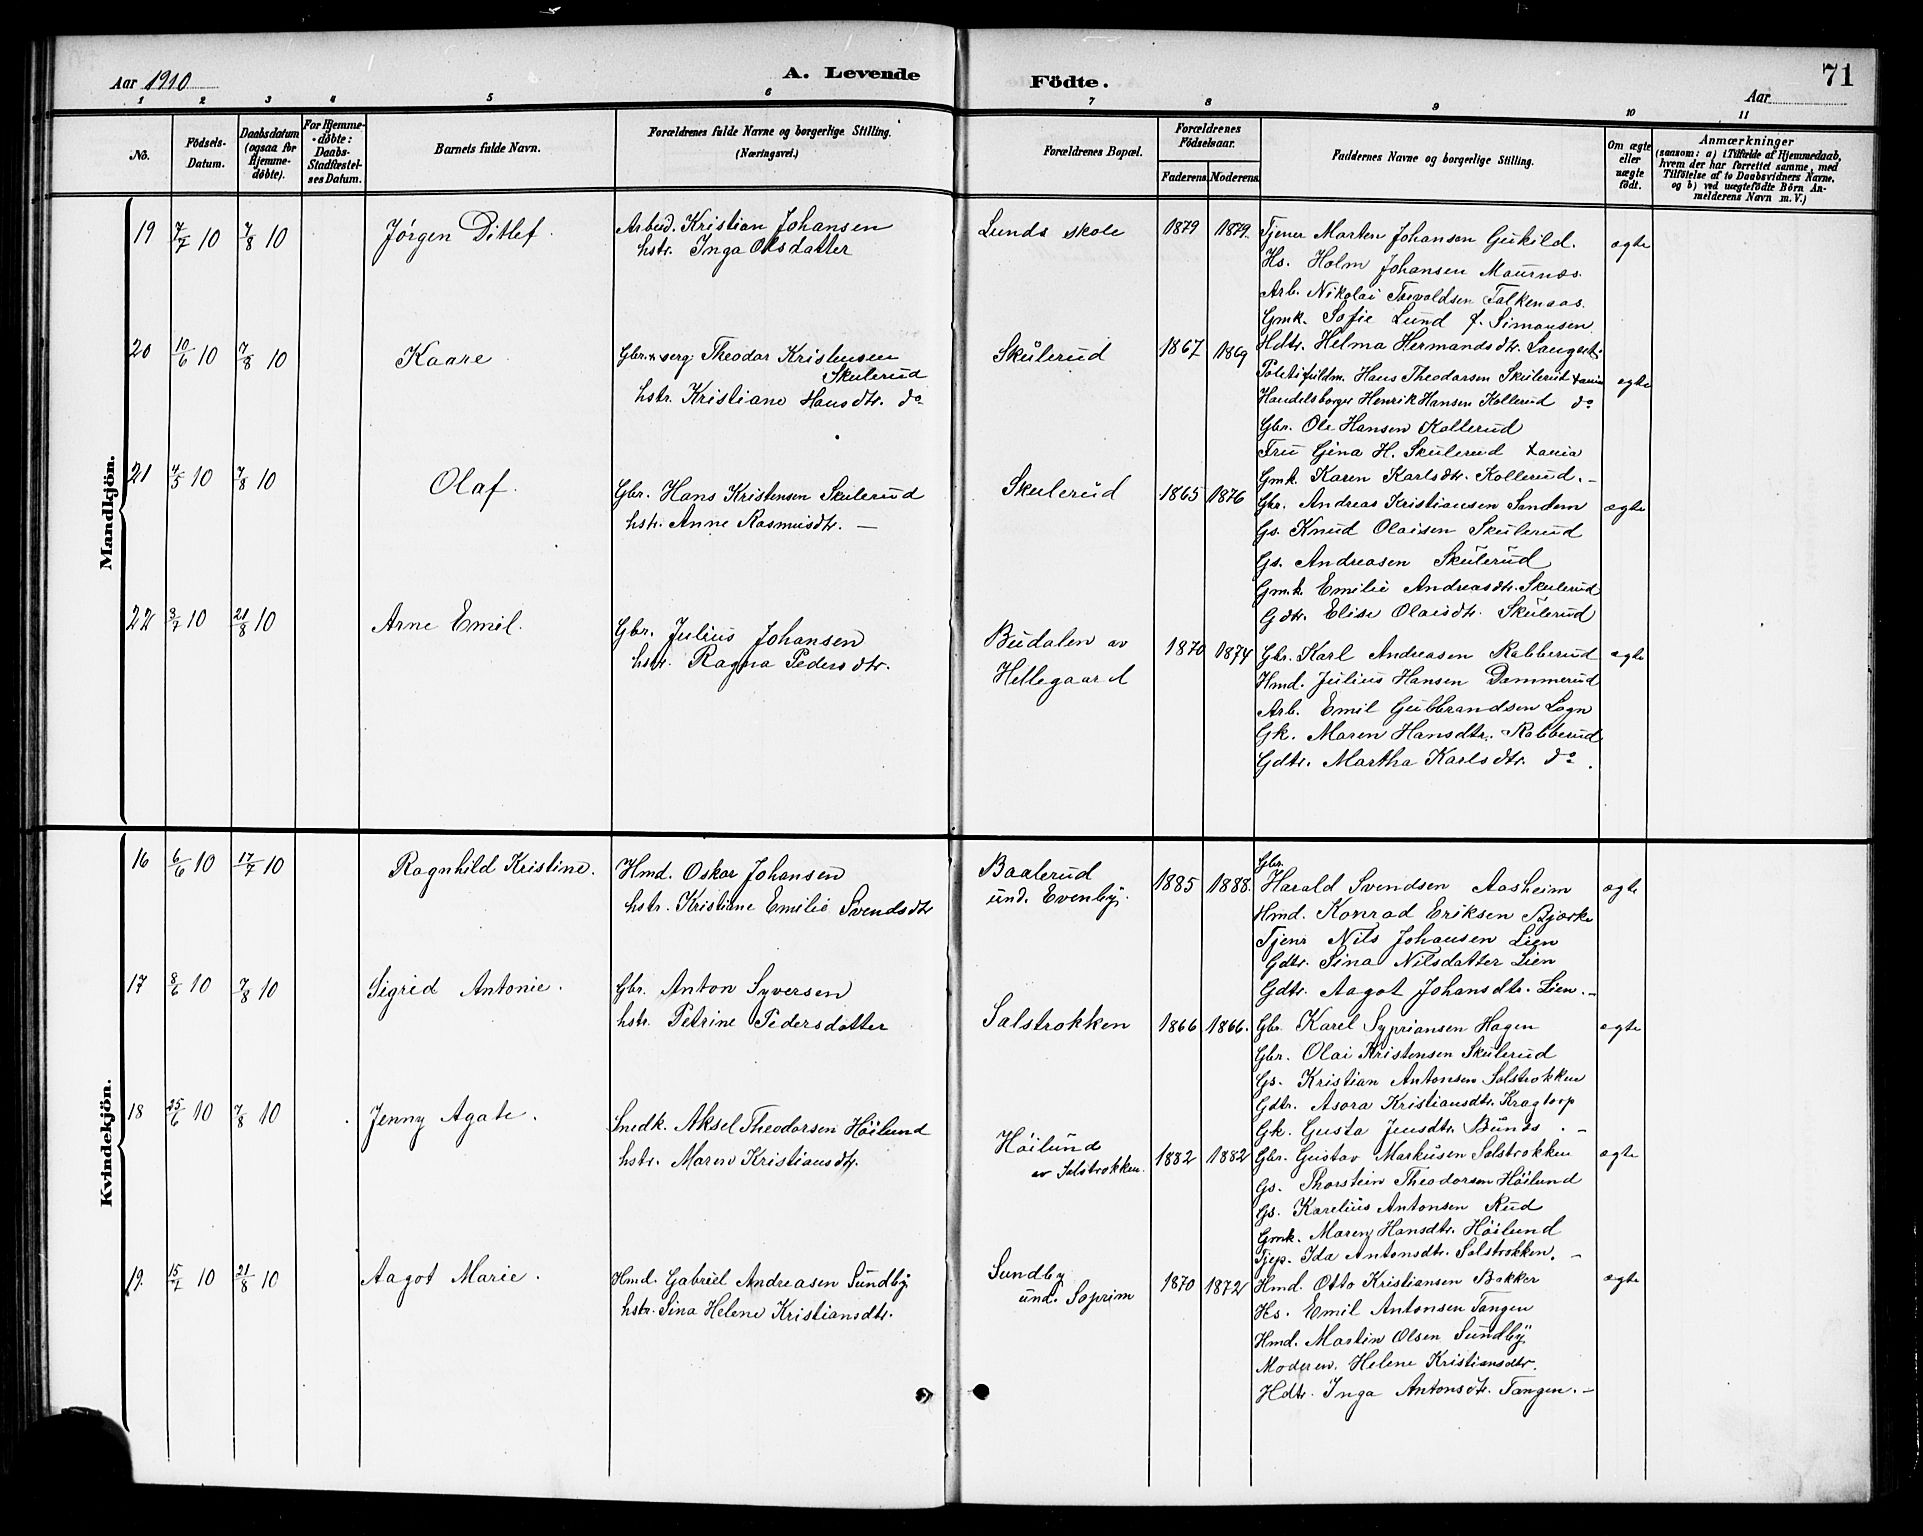 Aar 1910
A. Levende
Födte.
71
Aar
1 2 3 4 5 6 7 8 9 10 11
No.
Födsels-Datum.
Daabsdatum (ogsaa for Hjemme-døbte).
For Hjemme-døbte: Daabs-Stadfæstel-ses Datum.
Barnets fulde Navn.
Forældrenes fulde Navne og borgerlige Stilling. (Næringsvei.)
Forældrenes Bopæl.
Forældrenes Födselsaar.
Faderens. Moderens.
Faddernes Navne og borgerlige Stilling.
Om ægte eller uægte födt.
Anmærkninger
(saasom: a) i Tilfælde af Hjemmedaab,
hvem der har forrettet samme, med
Tilföielse af to Daabsvidners Navne.
og b) ved uægtefödte Börn An-
melderens Navn m. V.)
Mandkjön.
19 7/7 10 7/8 10 Jørgen Ditlef. Arbeid. Kristian Johansen
hstr. Inga Olsdatter
Lunds skole 1879 1879. ægte
Tjener Marten Johansen Gukild.
Hs. Holm Johansen Maurnæs.
Arb. Nikolai Torvaldsen Falkenaas.
Gmk. Sofie Lund f. Simonsen
20 10/6 10 7/8 10 Kaare Gbr. & serg. Theodor Kristensen
Skulerud
hstr. Kristiane Hansdtr. do
Skulerud 1867 1869 ægte
Hdtr. Helma Hermandsdtr.
Politifuldm. Hans Theodorsen Skulerud
Handelsborger Henrik Hansen Kollerud do
Gbr. Ole Hansen Kollerud
Fru Gina H. Skulerud
Gmk. Karen Karlsdtr. Kollerud. –
21 4/5 10 7/8 10 Olaf. Gbr. Hans Kristensen Skulerud
hstr. Anne Rasmusdtr. —
Skulerud 1865 1876 ægte
Gbr. Andreas Kristiansen Sandem
Gs. Knud Olaisen Skulerud
Gs. Andreasen Skulerud
Gmk. Emilie Andreasdtr. Skulerud
Gdtr. Elise Olaisdtr. Skulerud
22 3/7 10 21/8 10 Arne Emil. Gbr. Julius Johansen
hstr. Ragna Pedersdtr.
Budalen av
Hellegaard 1870 1874 ægte
Gbr. Karl Andreasen Rabberud
Hmd. Julius Hansen Dammerud
Arb. Emil Gulbrandsen Løgn
Gk. Maren Hansdtr. Rabberud
Gdtr. Martha Karlsdtr. do.
Kvindekjön.
16 6/6 10 17/7 10 Ragnhild Kristine. Hmd. Oskar Johansen
hstr. Kristiane Emilie Svendsdtr
Baalerud
und. Evenby. 1885 1888. ægte
Gbr.
Harald Svendsen Aasheim
Hmd. Konrad Eriksen Bjørke
Tjenr Nils Johansen Lien
Gdtr. Sina Nilsdatter Lien
Gdtr. Aagot Johansdtr. Lien. –
17 8/6 10 7/8 10 Sigrid Antonie. Gbr. Anton Syversen
hstr. Petrine Pedersdatter
Salstrokken 1866 1866. ægte
Gbr. Karel Sypriansen Hagen
Gbr. Olai Kristensen Skulerud
Gs. Kristian Antonsen Solstrokken
Gdtr. Asora Kristiansdtr. Kragtorp
Gk. Gusta Jensdtr. Bunæs. –
18 25/6 10 7/8 10 Jenny Agate. Snedk. Aksel Theodorsen Höilund
hstr. Maren Kristiansdtr.
Höilund
av Solstrokken. 1882 1882 ægte
Gbr. Gustav Markusen Solstrokken
Gs. Thorstein Theodorsen Höilund
Gs. Karelius Antonsen Rud
Gmk. Maren Hansdtr. Höilund
Tjep. Ida Antonsdtr. Solstrokken. –
19. 15/7 10 21/8 10 Aagot Marie. Hmd. Gabriel Andreasen Sundby
hstr. Sina Helene Kristiansdtr.
Sundby
und. Soprim 1870 1872 ægte
Hmd. Otto Kristiansen Bakker
Hs. Emil Antonsen Tangen
Hmd. Martin Olsen Sundby
Moderen. Helene Kristiansdtr.
Hdtr. Inga Antonsdtr. Tangen. –